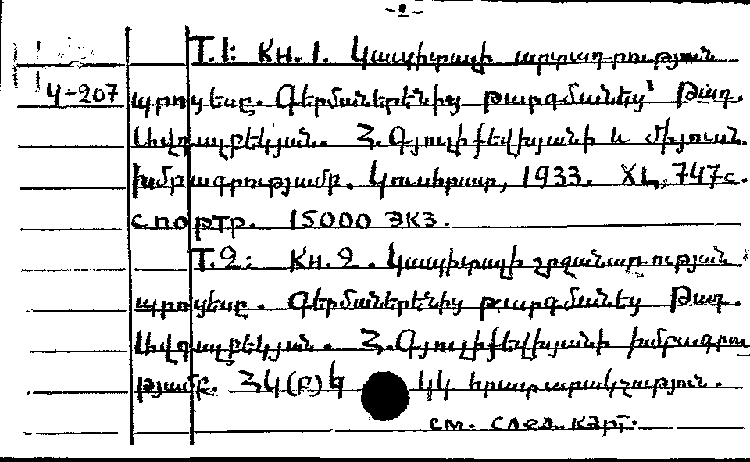 -2-
Т.1: Кн.1. Կապիտալի արտադրության
Կ-207 պրոցեսը. Գերմաներէնից թարգմանեց՝ Թադ.
Ավդալբեկյան. Հ. Գյուլիքեվխյանի և միլուսն.
խմբագրությամբ. Կուսհրատ, 1933. XL, 747с.
с портр. 15000 экз.
Т.2: Кн.2. Կապիտալի շրջանառության
պրոցեսը. Գերմաներէնից թարգմանեց Թադ.
Ավդալբեկյան. Հ. Գյուլիքեվխյանի խմբագրու
թյամբ. ՀԿ(բ)Կ ԿԿ հրատարակչություն.
см. след. карт.